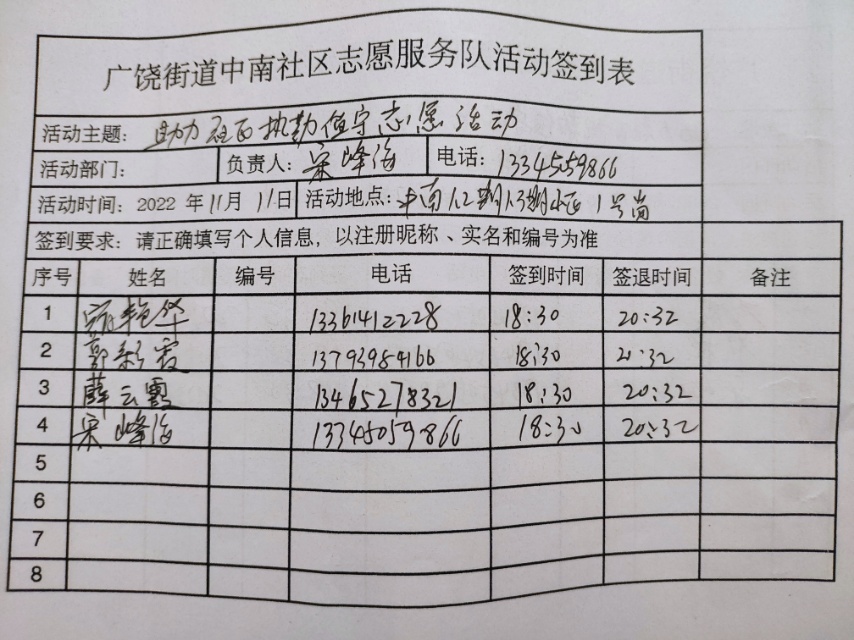 广饶街道中南社区志愿服务队活动签到表
活动主题：助力社区执勤值守志愿活动
活动部门： 负责人：宋峰海 电话：13345059866
活动时间：2022 年 11月 11日 活动地点： 1号岗
签到要求：请正确填写个人信息，以注册昵称、实名和编号为准
序号 姓名 编号 电话 签到时间 签退时间 备注
1 艳华 13361412228 18:30 20:32
2 郭彩霞 13793984166 18:30 20:32
3 薛云霞 13465278321 18:30 20:32
4 宋峰海 13345059866 18:30 20:32
5
6
7
8